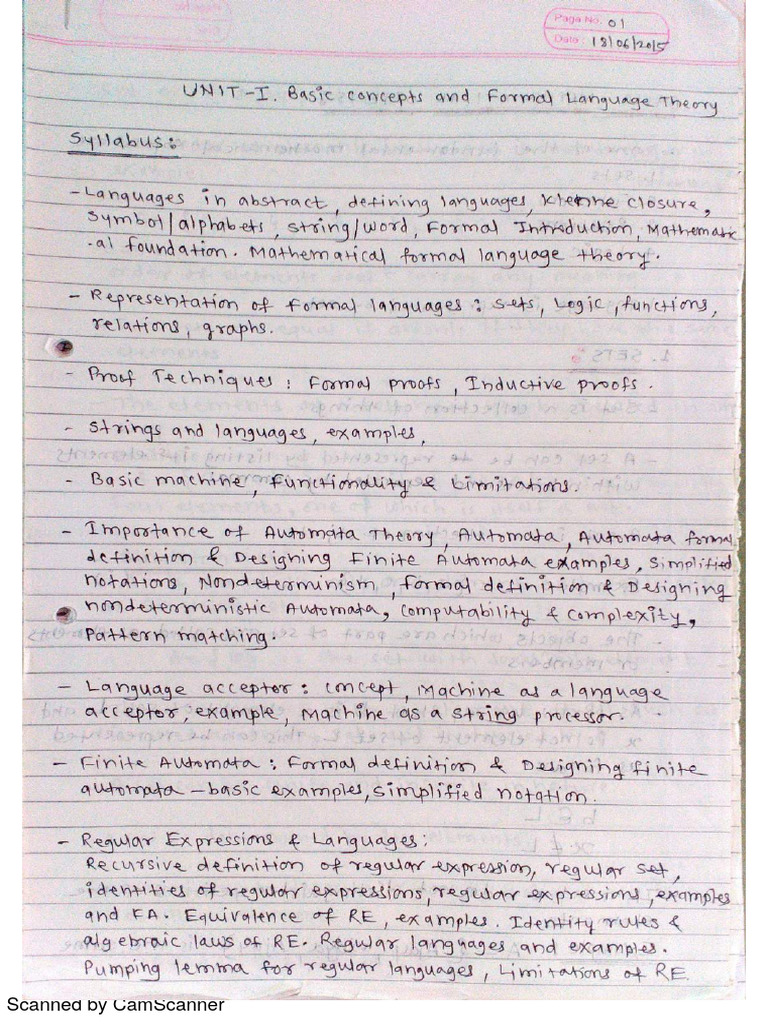 Page No. 01
Date: 18/06/2015
UNIT-I. Basic concepts and Formal Language Theory
Syllabus:
- Languages in abstract, defining languages, Kleene closure,
Symbol/alphabets, string/word, Formal Introduction, Mathematic
-al foundation. Mathematical formal language theory.
- Representation of formal languages: sets, Logic, functions,
relations, graphs.
- Proof Techniques: Formal proofs, Inductive proofs.
- Strings and languages, examples,
- Basic machine, functionality & Limitations.
- Importance of Automata Theory, Automata, Automata formal
definition & Designing Finite Automata examples, Simplified
notations, Nondeterminism, formal definition & Designing
nondeterministic Automata, computability & complexity,
Pattern matching.
- Language acceptor: concept, Machine as a language
acceptor, example, Machine as a string processor.
- Finite Automata: Formal definition & Designing finite
automata - basic examples, simplified notation.
- Regular Expressions & Languages:
Recursive definition of regular expression, regular set,
identities of regular expressions, regular expressions, examples
and FA. Equivalence of RE, examples. Identity rules &
algebraic laws of RE. Regular languages and examples.
Pumping lemma for regular languages, Limitations of RE.
Scanned by CamScanner